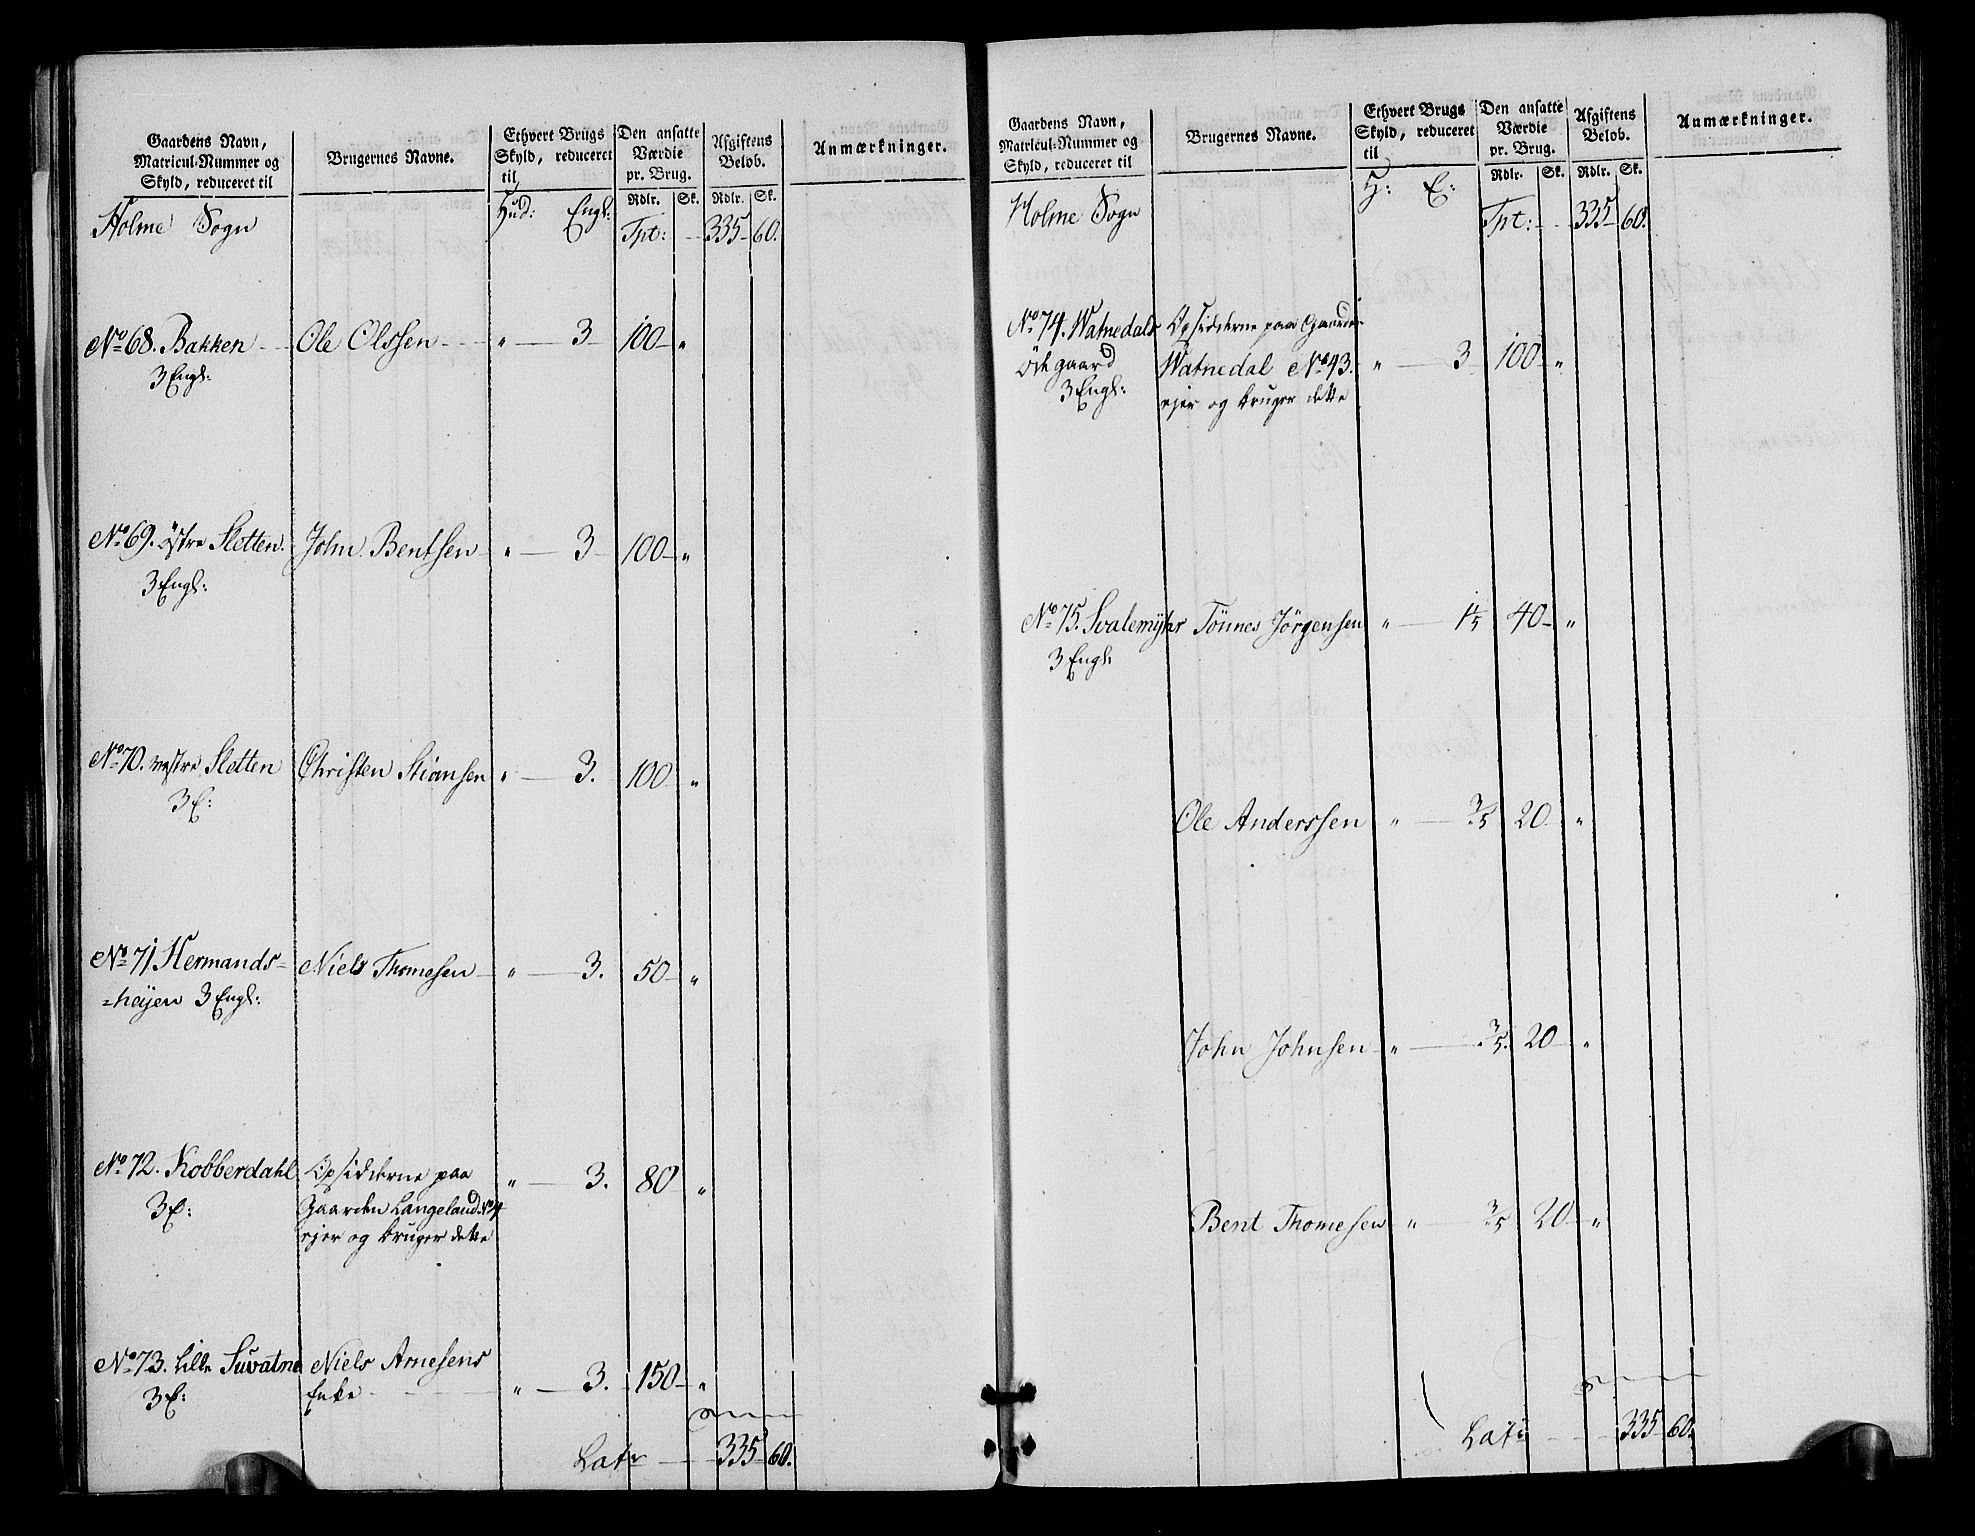 Gaardens Navn,
Matricul-Nummer og
Skyld, reduceret til
Brugernes Navne.
Ethvert Brugs
Skyld, reduceret
til
Den ansatte
Værdie
pr. Brug.
Afgiftens
Beløb.
Anmærkninger.
Rdlr. Sk. Rdlr. Sk.
Holme Sogn Hud: Engl: Tpt: 335 60.
No 68. Bakken Ole Olssen " 3 100 "
3 Engl:
No 69. östre Sletten John Bentsen " 3 100 "
3 Engl:
No 70. vestre Sletten Christen Stiansen " 3. 100 "
3 E:
No 71 Hermands= Niels Thomesen " 3. 50 "
=heijen 3 Engl:
No 72. Kobberdahl Opsidderne paa " 3. 80 "
3 E: Gaarden Langeland No 4
ejer og bruger dette
No 73. Lille Suvatne Niels Arnesens
3 E: Enke " 3. 150 "
Lat: 335 60.
Gaardens Navn,
Matricul-Nummer og
Skyld, reduceret til
Brugernes Navne.
Ethvert Brugs
Skyld, reduceret
til
Den ansatte
Værdie
pr. Brug.
Afgiftens
Beløb.
Anmærkninger.
Rdlr. Sk. Rdlr. Sk.
Holme Sogn H: E: Tpt: 335 60.
No 74. Watnedals Opsidderne paa Gaarden
Öde gaard Watnedal No 43. " 3 100 "
3 Engl: ejer og bruger dette
No 75. Svalemyhr Tönnes Jörgensen " 1 1/5 40 "
3 Engl:
Ole Anderssen " 3/5 20 "
John Johnsen " 3/5. 20 "
Bent Thomesen " 3/5 20 "
Lat: 335 60.